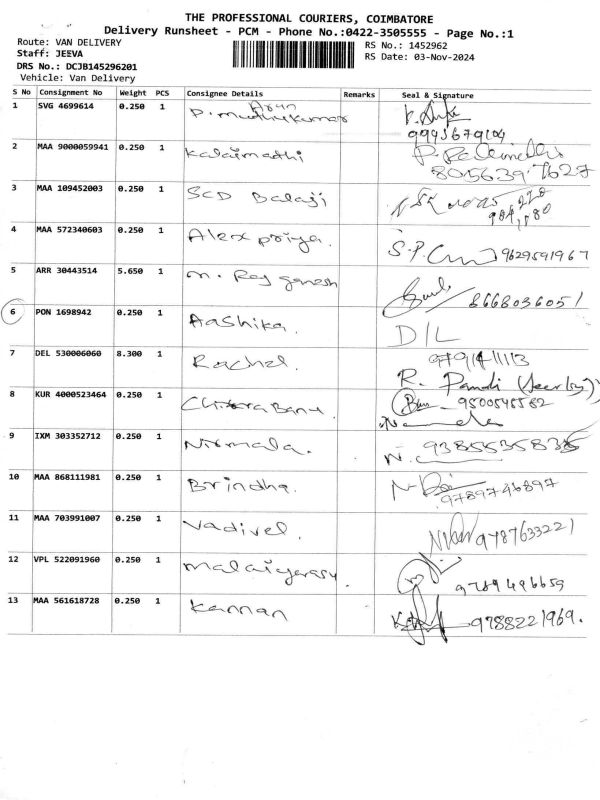 THE PROFESSIONAL COURIERS, COIMBATORE
Delivery Runsheet - PCM - Phone No.:0422-3505555 - Page No.:1
Route: VAN DELIVERY RS No.: 1452962
Staff: JEEVA RS Date: 03-Nov-2024
DRS No.: DCJB145296201
Vehicle: Van Delivery
S No Consignment No Weight PCS Consignee Details Remarks Seal & Signature
1 SVG 4699614 0.250 1 P. Muthukumar
2 MAA 9000059941 0.250 1 Kalaimadhi
8056397627
3 MAA 109452003 0.250 1 SCD Balaji
4 MAA 572340603 0.250 1 Alex priya. 9629591967
5 ARR 30443514 5.650 1 M. Raj ganesh
8668036051
6 PON 1698942 0.250 1 Aashika.
D/L
7 DEL 530006060 8.300 1 Rachel.
R. Pandi
8 KUR 4000523464 0.250 1 Chitra Banu 9500545582
9 IXM 303352712 0.250 1 Nirmala. N. 9385535835
10 MAA 868111981 0.250 1 Brindha.
9789746897
11 MAA 703991007 0.250 1 Vadivel. 9787633221
12 VPL 522091960 0.250 1 Malaiyarasy.
9789496659
13 MAA 561618728 0.250 1 Kannan 9788221969.